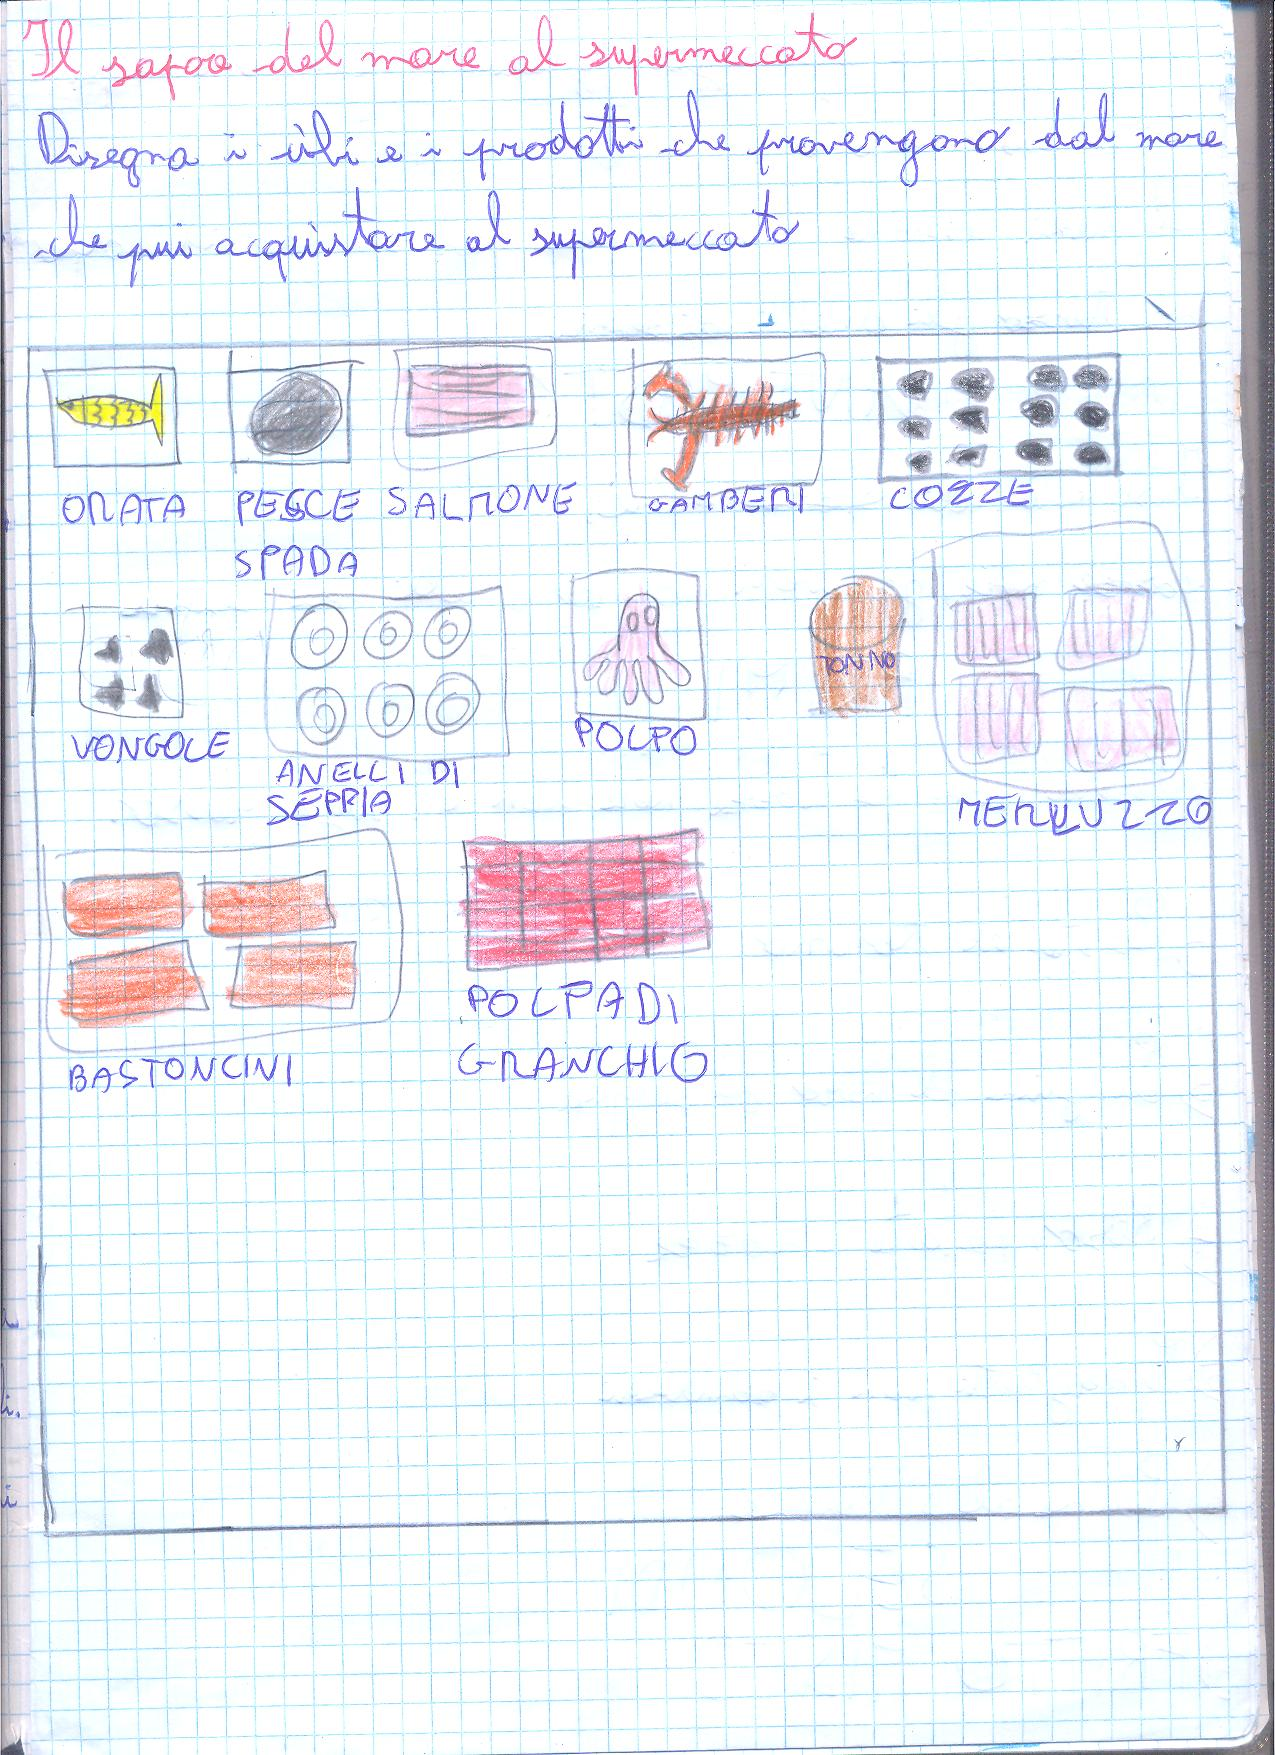 Il sapoo del mare al supermeccato
Disegna i cibi e i prodotti che provengono dal mare
che pui acquistare al supermeccato
ORATA
PESCE
SPADA
SALMONE
GAMBERI
COZZE
VONGOLE
ANELLI DI
SEPPIA
POLPO
TONNO
MERLUZZO
BASTONCINI
POLPA DI
GRANCHIO